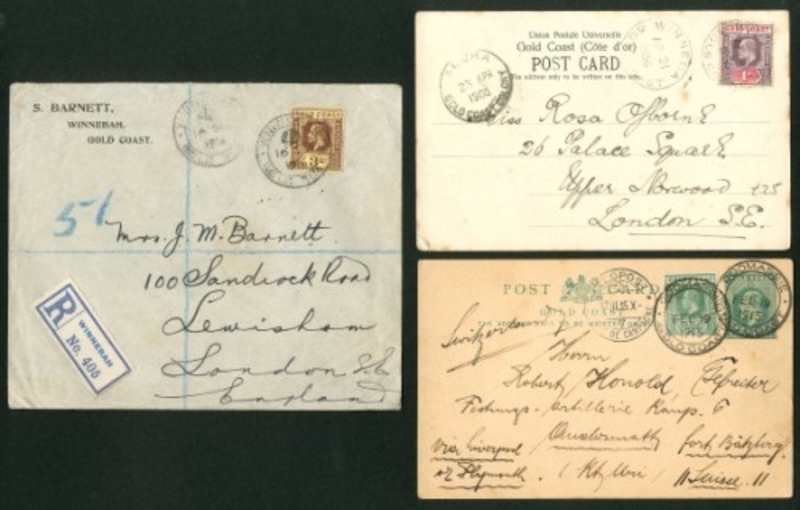 S. BARNETT,
WINNEBAH,
GOLD COAST.
GOLD COAST
51
Mrs. J. M. Barnett.
100 Sandrock Road
Lewisham
London S.E.
England
R
WINNEBAH
No. 405
Union Postale Universelle
Gold Coast (Côte d'or)
POST CARD
The address only to be written on this side.
WINNEBA
GOLD COAST
1d
23 AP
1906
GOLD COAST COLONY
Miss Rosa Osborne
26 Palace Square
Upper Norwood
London S.E.
POST CARD
GOLD COAST
THE ADDRESS ONLY TO BE WRITTEN
FEB 19
1915
GOLD COAST
FEB 19
1915
Herrn
Robert Honold
Artillerie Komp. 6
Andermatt
via Liverpool
or Plymouth
Suisse